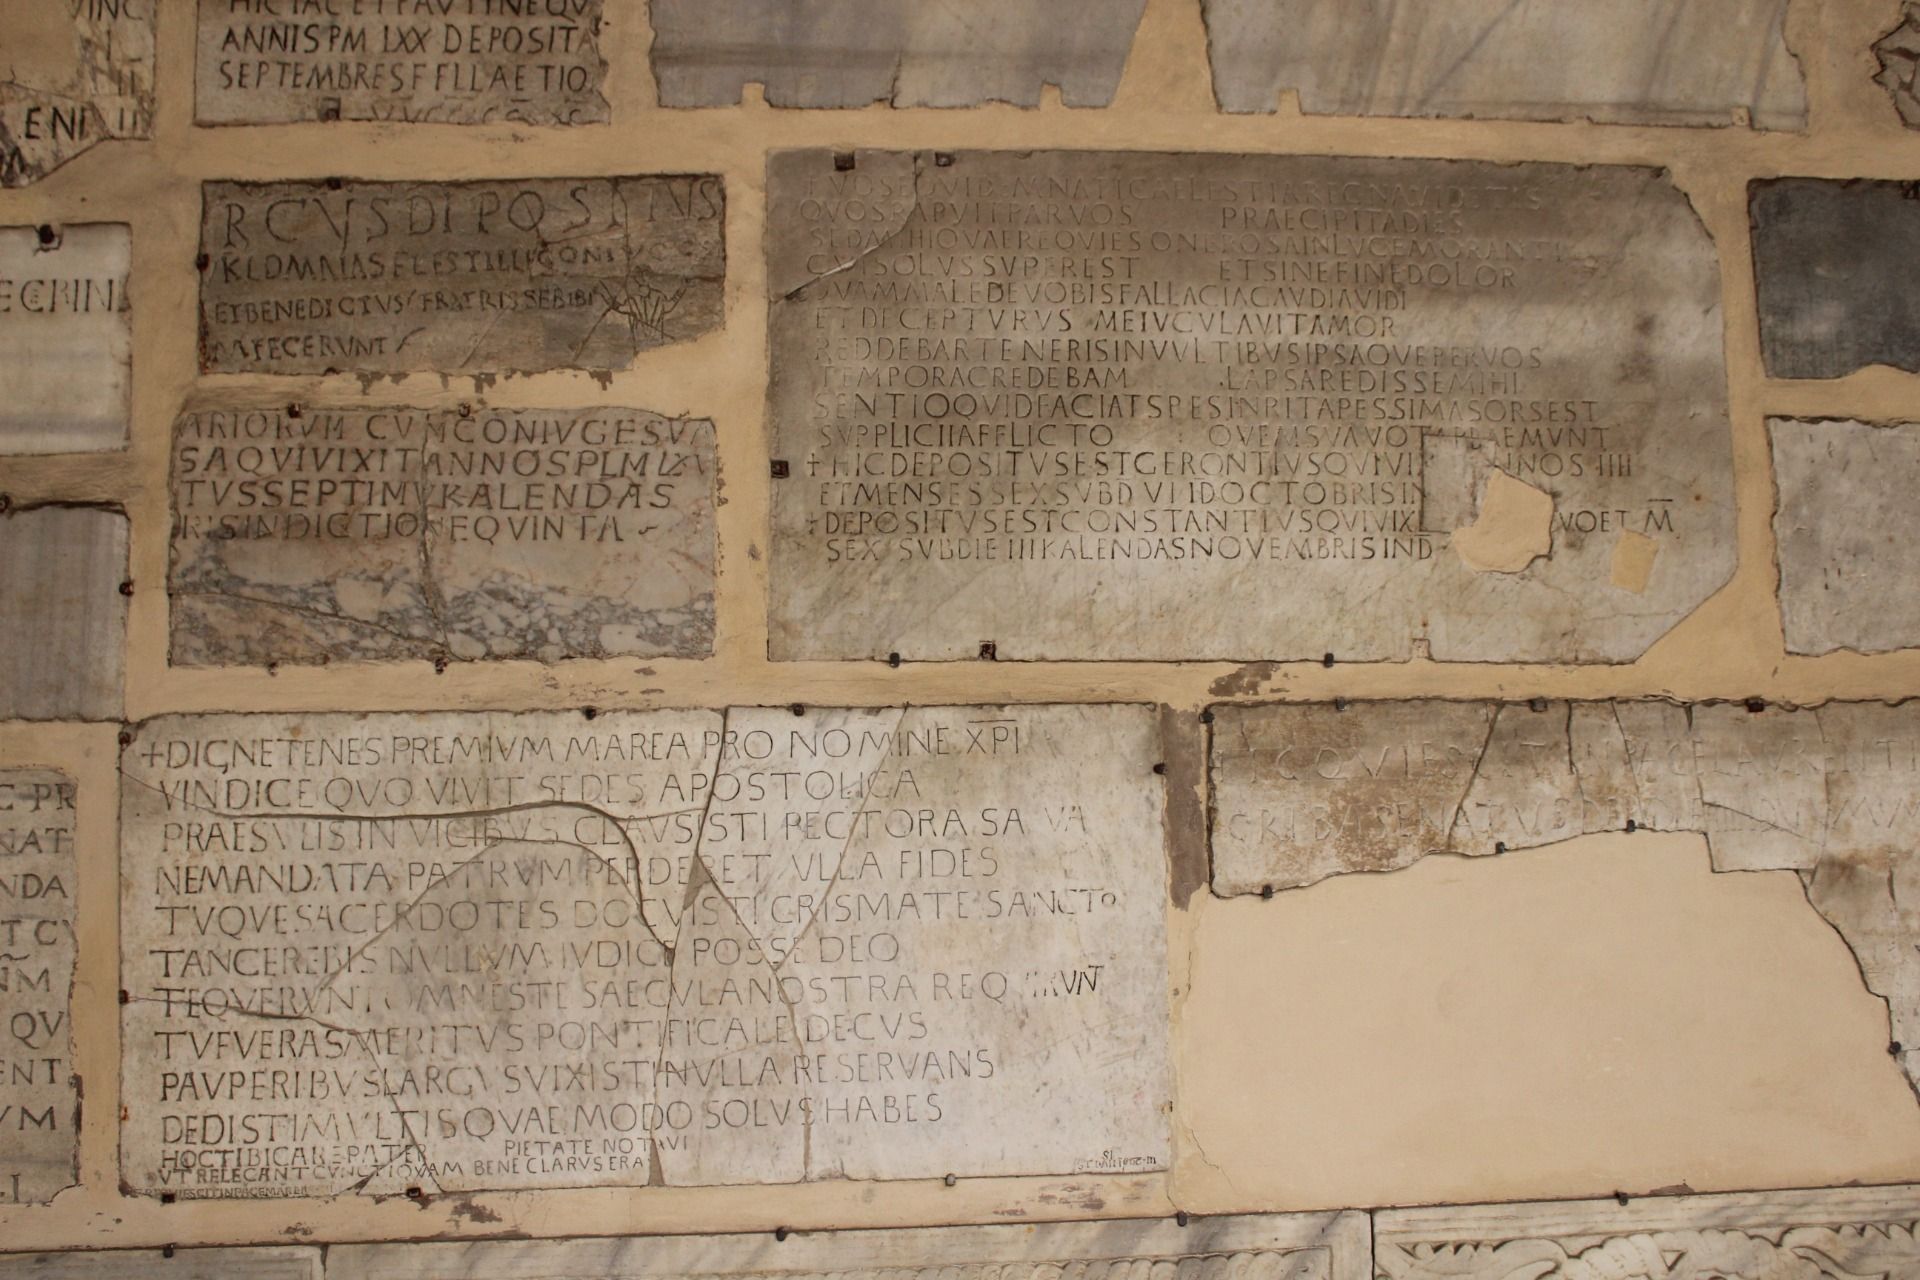 VINC
ENI III
M
HIC IACET PAVTINE QV
ANNIS PM LXX DEPOSITA
SEPTEMBRES F FLLAETIO
ECRIN
RCVS DIPOSITVS
KLDMAIAS
ET BENEDICTVS FRATRIS SEBIBI
FECERVNT
ARIORVM CVM CONIVGE SVA
SA QVI VIXIT ANNOS PLM LXV
TVS SEPTIMV KALENDAS
RIS INDICTIONE QVINTA
VOS EQVIDEM NATI CAELESTIA REGNA VIDETIS
QVOS RAPVIT PARVOS PRAECIPITA DIES
SED MIHI QVAE REQVIES ONEROSA IN LVCE MORANTI
CVI SOLVS SVPEREST ET SINE FINE DOLOR
QVAM MALE DE VOBIS FALLACIA GAVDIA VIDI
ET DECEPTVRVS ME IVGVLAVIT AMOR
REDDEBAR TENERIS IN VVLTIBVS IPSAQVE PER VOS
TEMPORA CREDEBAM LAPSA REDISSE MIHI
SENTIO QVID FACIAT SPES INRITA PESSIMA SORS EST
SVPPLICII AFFLICTO QVEM SVA VOTA PRAEMVNT
+ HIC DEPOSITVS EST GERONTIVS QVI VIXI ANNOS IIII
ET MENSES SEX SVB D VI ID OCTOBRIS IN
+ DEPOSITVS EST CONSTANTIVS QVI VIX VO ET M
SEX SVB DIE III KALENDAS NOVEMBRIS IND
+ DIGNE TENES PREMIVM MAREA PRO NOMINE XPI
VINDICE QVO VIVIT SEDES APOSTOLICA
PRAESVLIS IN VICIBVS CLAVSISTI RECTORA SA VA
NE MANDATA PATRVM PERDERET VLLA FIDES
TVQVE SACERDOTES DOCVISTI CRISMATE SANCTO
TANCERE BIS NVLLVM IVDICE POSSE DEO
TE QVERVNT OMNES TE SAECVLA NOSTRA REQVIRVNT
TV FVERAS MERITVS PONTIFICALE DECVS
PAVPERIBVS LARGVS VIXISTI NVLLA RESERVANS
DEDISTI MVLTIS QVAE MODO SOLVS HABES
HOC TIBI CARE PATER PIETATE NOTAVI
VT RELEGANT CVNCTI QVAM BENE CLARVS ERAS
REQVIESCIT IN PACE MAREA
HIC QVIESCIT IN PACE LAVRENTI
CRIBA SENATVS
C PR
NAT
NDA
T CV
NM
QV
ENT
VM
I